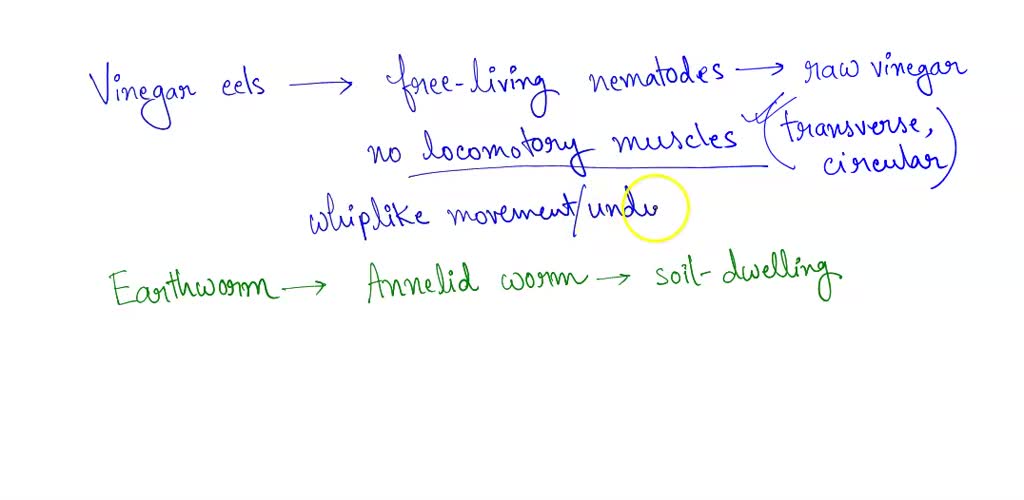 Vinegar eels → free-living nematodes → raw vinegar
no locomotory muscles (transverse, circular)
whiplike movement/undu
Earthworm → Annelid worm → soil-dwelling